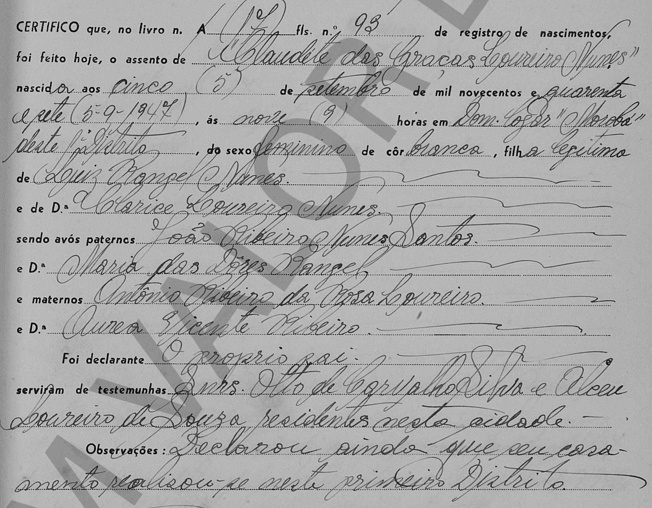 CERTIFICO que, no livro n. A (17) fls. n.º 93 de registro de nascimentos,
foi feito hoje, o assento de "Claudete das Graças Loureiro Nunes"
nascida aos cinco (5) de setembro de mil novecentos e quarenta
e sete (5-9-1947), ás nove (9) horas em Dom.
deste 1º distrito, do sexo feminino de côr branca, filha legitima
de Luiz Rangel Nunes.
e de D.ª Clarice Loureiro Nunes.
sendo avós paternos João Ribeiro Nunes Santos.
e D.ª Maria das Dôres Rangel
e maternos Antônio Ribeiro da Rosa Loureiro.
e D.ª Aurea Vicente Ribeiro.
Foi declarante O proprio pai.
serviram de testemunhas Snrs. Otto de Carvalho Silva e Alceu
Loureiro de Souza, residentes nesta cidade.
Observações: Declarou ainda que seu casa-
mento realisou-se neste primeiro Distrito.